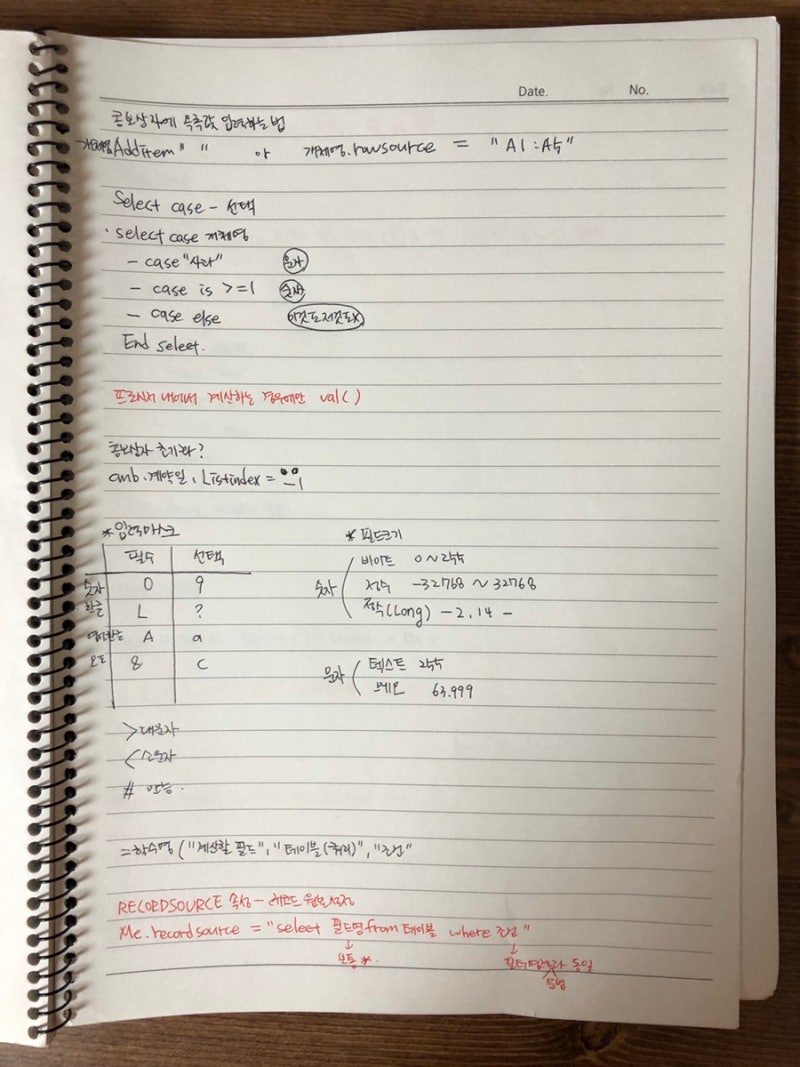 Date. No.
콤보상자에 목록값 입력하는 법
개체명.AddItem " " or 개체명.rowsource = "A1:A5"
Select case - 선택
· select case 개체명
- case "사과" 문자
- case is >=1 숫자
- case else 이것도저것도X
End select.
프로시저 내에서 계산하는 경우에만 val()
콤보상자 초기화?
cmb.계약일.Listindex = -1
* 입력마스크
필수 선택
숫자 0 9
한글 L ?
영어한글 A a
모든 & C
* 필드크기
숫자
바이트 0 ~ 255
정수 -32768 ~ 32768
정수(Long) - 2.14 -
문자
텍스트 255
메모 63.999
> 대문자
< 소문자
# 만능.
=함수명("계산할 필드","테이블(쿼리)","조건"
RECORDSOURCE 속성 - 레코드 원본 설정
Me.recordsource = "select 필드명 from 테이블 where 조건"
↓ ↓
보통 * 필터 방법과 동일
5번